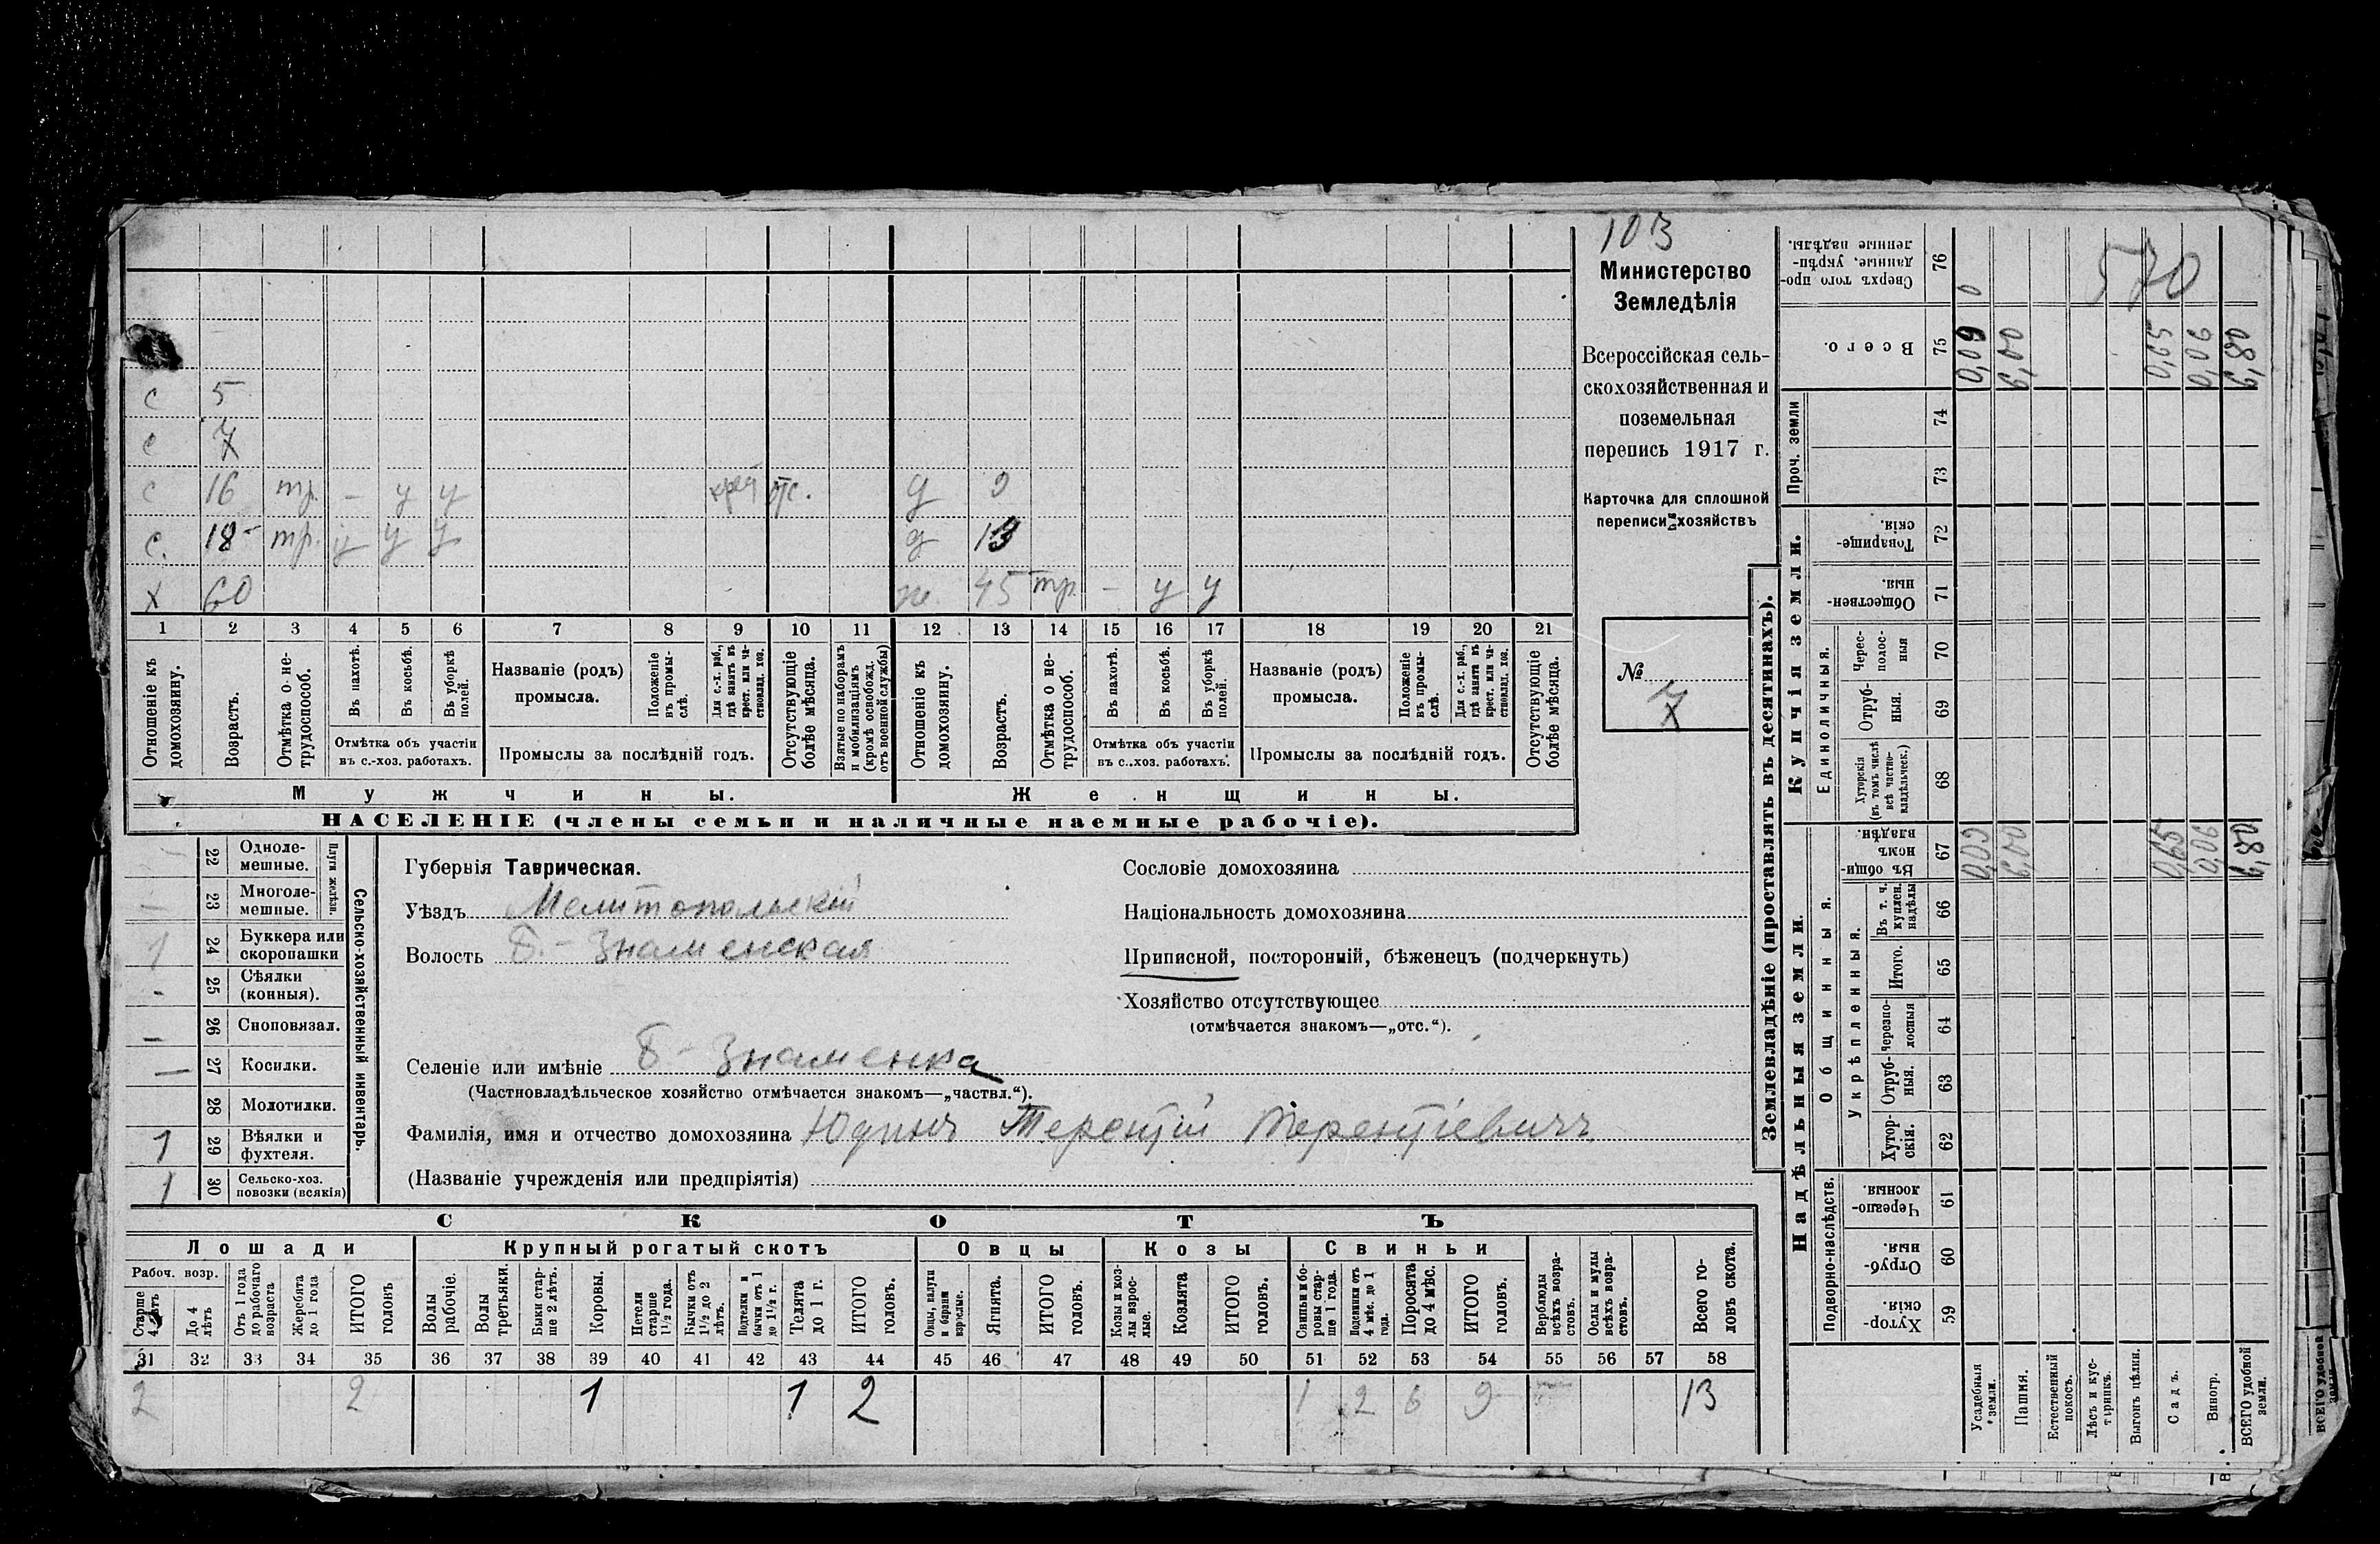 103
Министерство
Земледѣлія
Всероссійская сель-
скохозяйственная и
поземельная
перепись 1917 г.
Карточка для сплошной
переписи хозяйствъ
№
7
с 5
с 7
с 16 тр. - у у отс. д 9
с. 18 тр. у у у д 13
х 60 ж. 45 тр. - у у
1 2 3 4 5 6 7 8 9 10 11 12 13 14 15 16 17 18 19 20 21
Отношеніе къ домохозяину.
Возрастъ.
Отмѣтка о не-трудоспособ.
Въ пахотѣ.
Въ косьбѣ.
Въ уборкѣ полей.
Отмѣтка объ участіи
въ с.-хоз. работахъ.
Названіе (родъ)
промысла.
Положеніе въ промы-слѣ.
Для с.-х. раб., гдѣ занятъ въ крест. или ча-стновлад. хоз.
Промыслы за послѣдній годъ.
Отсутствующіе болѣе мѣсяца.
Взятые по наборамъ и мобилизаціямъ (кромѣ освобожд. отъ военной службы)
Отношеніе къ домохозяину.
Возрастъ.
Отмѣтка о не-трудоспособ.
Въ пахотѣ.
Въ косьбѣ.
Въ уборкѣ полей.
Отмѣтка объ участіи
въ с.-хоз. работахъ.
Названіе (родъ)
промысла.
Положеніе въ промы-слѣ.
Для с.-х. раб., гдѣ занятъ въ крест. или ча-стновлад. хоз.
Промыслы за послѣдній годъ.
Отсутствующіе болѣе мѣсяца.
Мужчины. Женщины.
НАСЕЛЕНІЕ (члены семьи и наличные наемные рабочіе).
Сельско-хозяйственный инвентарь.
Плуги желѣзн.
22 Одноле-мешные.
23 Многоле-мешные.
1 24 Буккера или скоропашки
- 25 Сѣялки (конныя).
- 26 Сноповязал.
- 27 Косилки.
28 Молотилки.
1 29 Вѣялки и фухтеля.
1 30 Сельско-хоз. повозки (всякія)
Губернія Таврическая.
Уѣздъ Мелитопольскій
Волость Б.-Знаменская
Селеніе или имѣніе Б-Знаменка
(Частновладѣльческое хозяйство отмѣчается знакомъ—„частвл.“).
Фамилія, имя и отчество домохозяина Юдинъ Терентій Терентіевичъ
(Названіе учрежденія или предпріятія)
Сословіе домохозяина
Національность домохозяина
Приписной, посторонній, бѣженецъ (подчеркнуть)
Хозяйство отсутствующее
(отмѣчается знакомъ—„отс.“).
СКОТЪ
Лошади Крупный рогатый скотъ Овцы Козы Свиньи
Рабоч. возр.
Старше 4 лѣтъ
До 4 лѣтъ
Отъ 1 года до рабочаго возраста
Жеребята до 1 года
ИТОГО головъ
Волы рабочіе.
Волы третьяки.
Быки стар-ше 2 лѣтъ.
Коровы.
Нетели старше 1½ года.
Бычки отъ 1½ до 2 лѣтъ.
Подтелки и бычки отъ 1 до 1½ г.
Телята до 1 г.
ИТОГО головъ.
Овцы, валухи и бараны взрослые.
Ягнята.
ИТОГО головъ.
Козы и коз-лы взрос-лые.
Козлята
ИТОГО головъ.
Свиньи и бо-ровы стар-ше 1 года.
Подсвинки отъ 4 мѣс. до 1 года.
Поросята до 4 мѣс.
ИТОГО головъ.
Верблюды всѣхъ возра-стовъ.
Ослы и мулы всѣхъ возра-стовъ.
Всего го-ловъ скота.
31 32 33 34 35 36 37 38 39 40 41 42 43 44 45 46 47 48 49 50 51 52 53 54 55 56 57 58
2 2 1 1 2 1 2 6 9 13
Землевладѣніе (проставлять въ десятинахъ).
Надѣльныя земли. Купчія земли.
Подворно-наслѣдств.
Общинныя.
Укрѣпленныя.
Единоличныя.
Проч. земли
59 Хутор-скія.
60 Отруб-ныя.
61 Черезпо-лосныя.
62 Хутор-скія.
63 Отруб-ныя.
64 Черезпо-лосныя
65 Итого.
66 Въ т. ч. куплен. надѣлы
67 Въ общи-номъ владѣн.
68 Хуторскія (въ томъ числѣ всѣ частно-владѣльческ.)
69 Отруб-ныя.
70 Черес-полос-ныя
71 Обществен-ныя.
72 Товарище-скія.
73
74
75 Всего.
76 Сверхъ того про-данные, укрѣп-ленные надѣлы.
Усадебныя земли. 0,09 0,09 0
Пашня. 6,00 6,00
Естественный покосъ.
Лѣсъ и кус-тарникъ.
Выгонъ цѣлин.
Садъ. 0,65 0,65
Виногр. 0,06 0,06
ВСЕГО удобной земли. 6,80 6,80
570